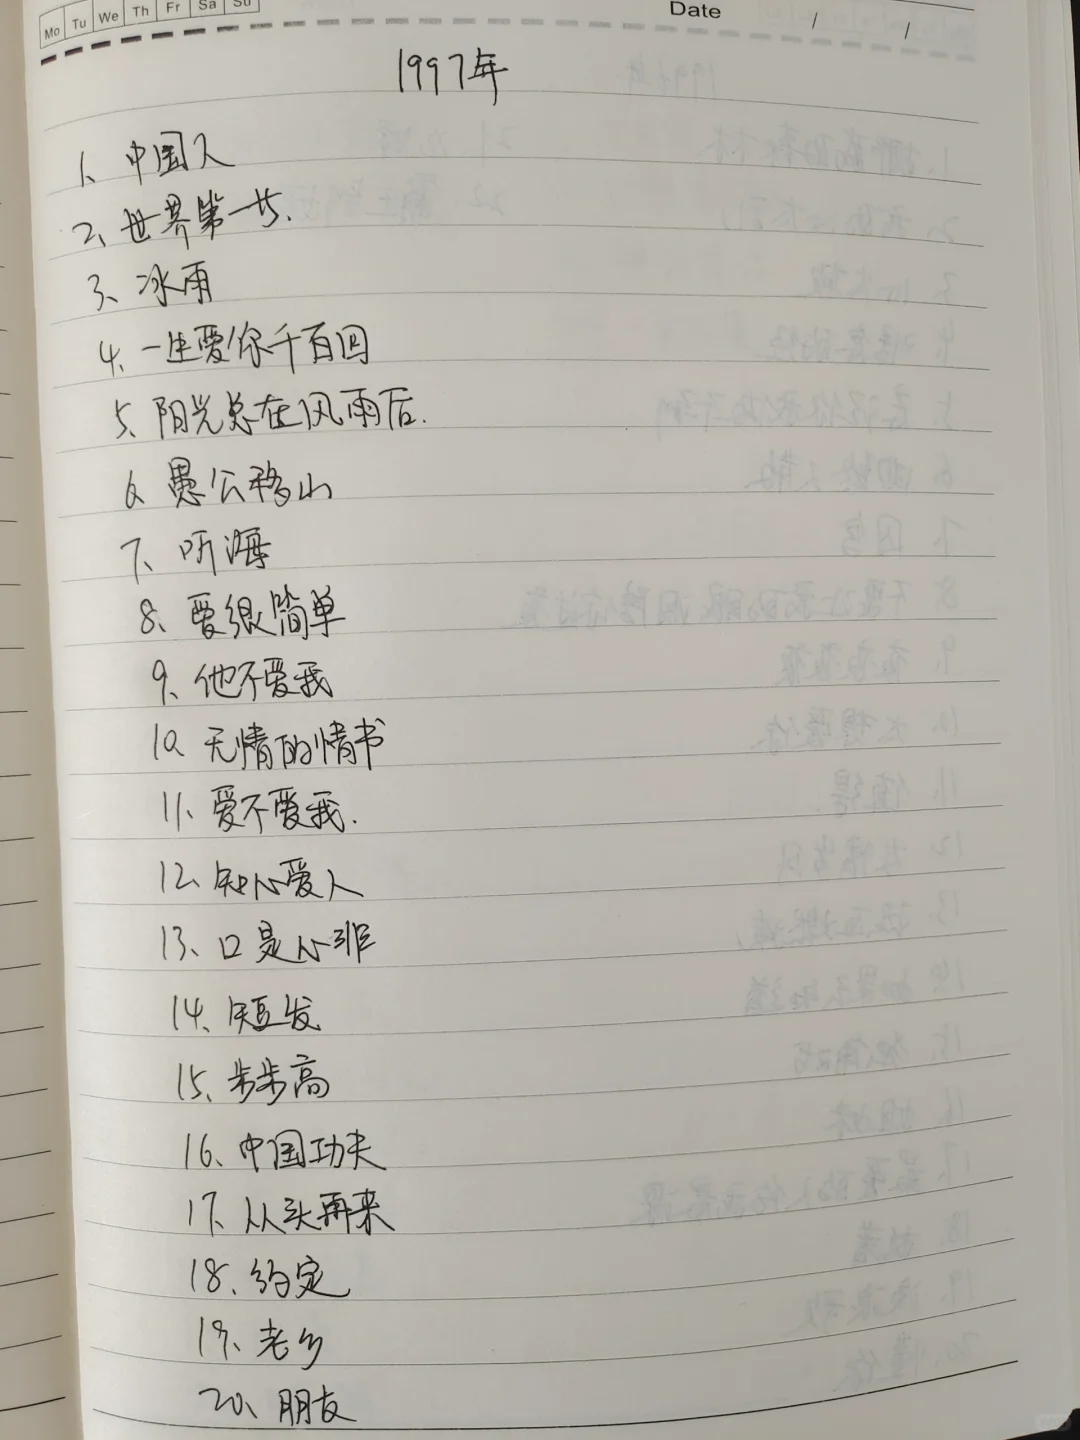 Mo Tu We Th Fr Sa Su
Date / /
1997年
1、中国人
2、世界第一步.
3、冰雨
4、一生爱你千百回
5、阳光总在风雨后.
6、愚公移山
7、听海
8、爱很简单
9、他不爱我
10、无情的情书
11、爱不爱我.
12、知心爱人
13、口是心非
14、短发
15、步步高
16、中国功夫
17、从头再来
18、约定
19、老乡
20、朋友